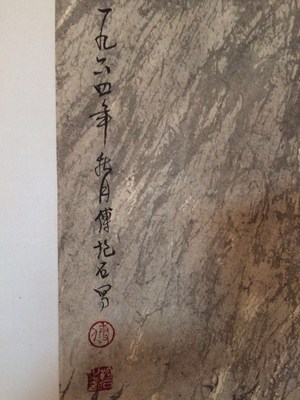 一九六四年秋月傅抱石写
傅